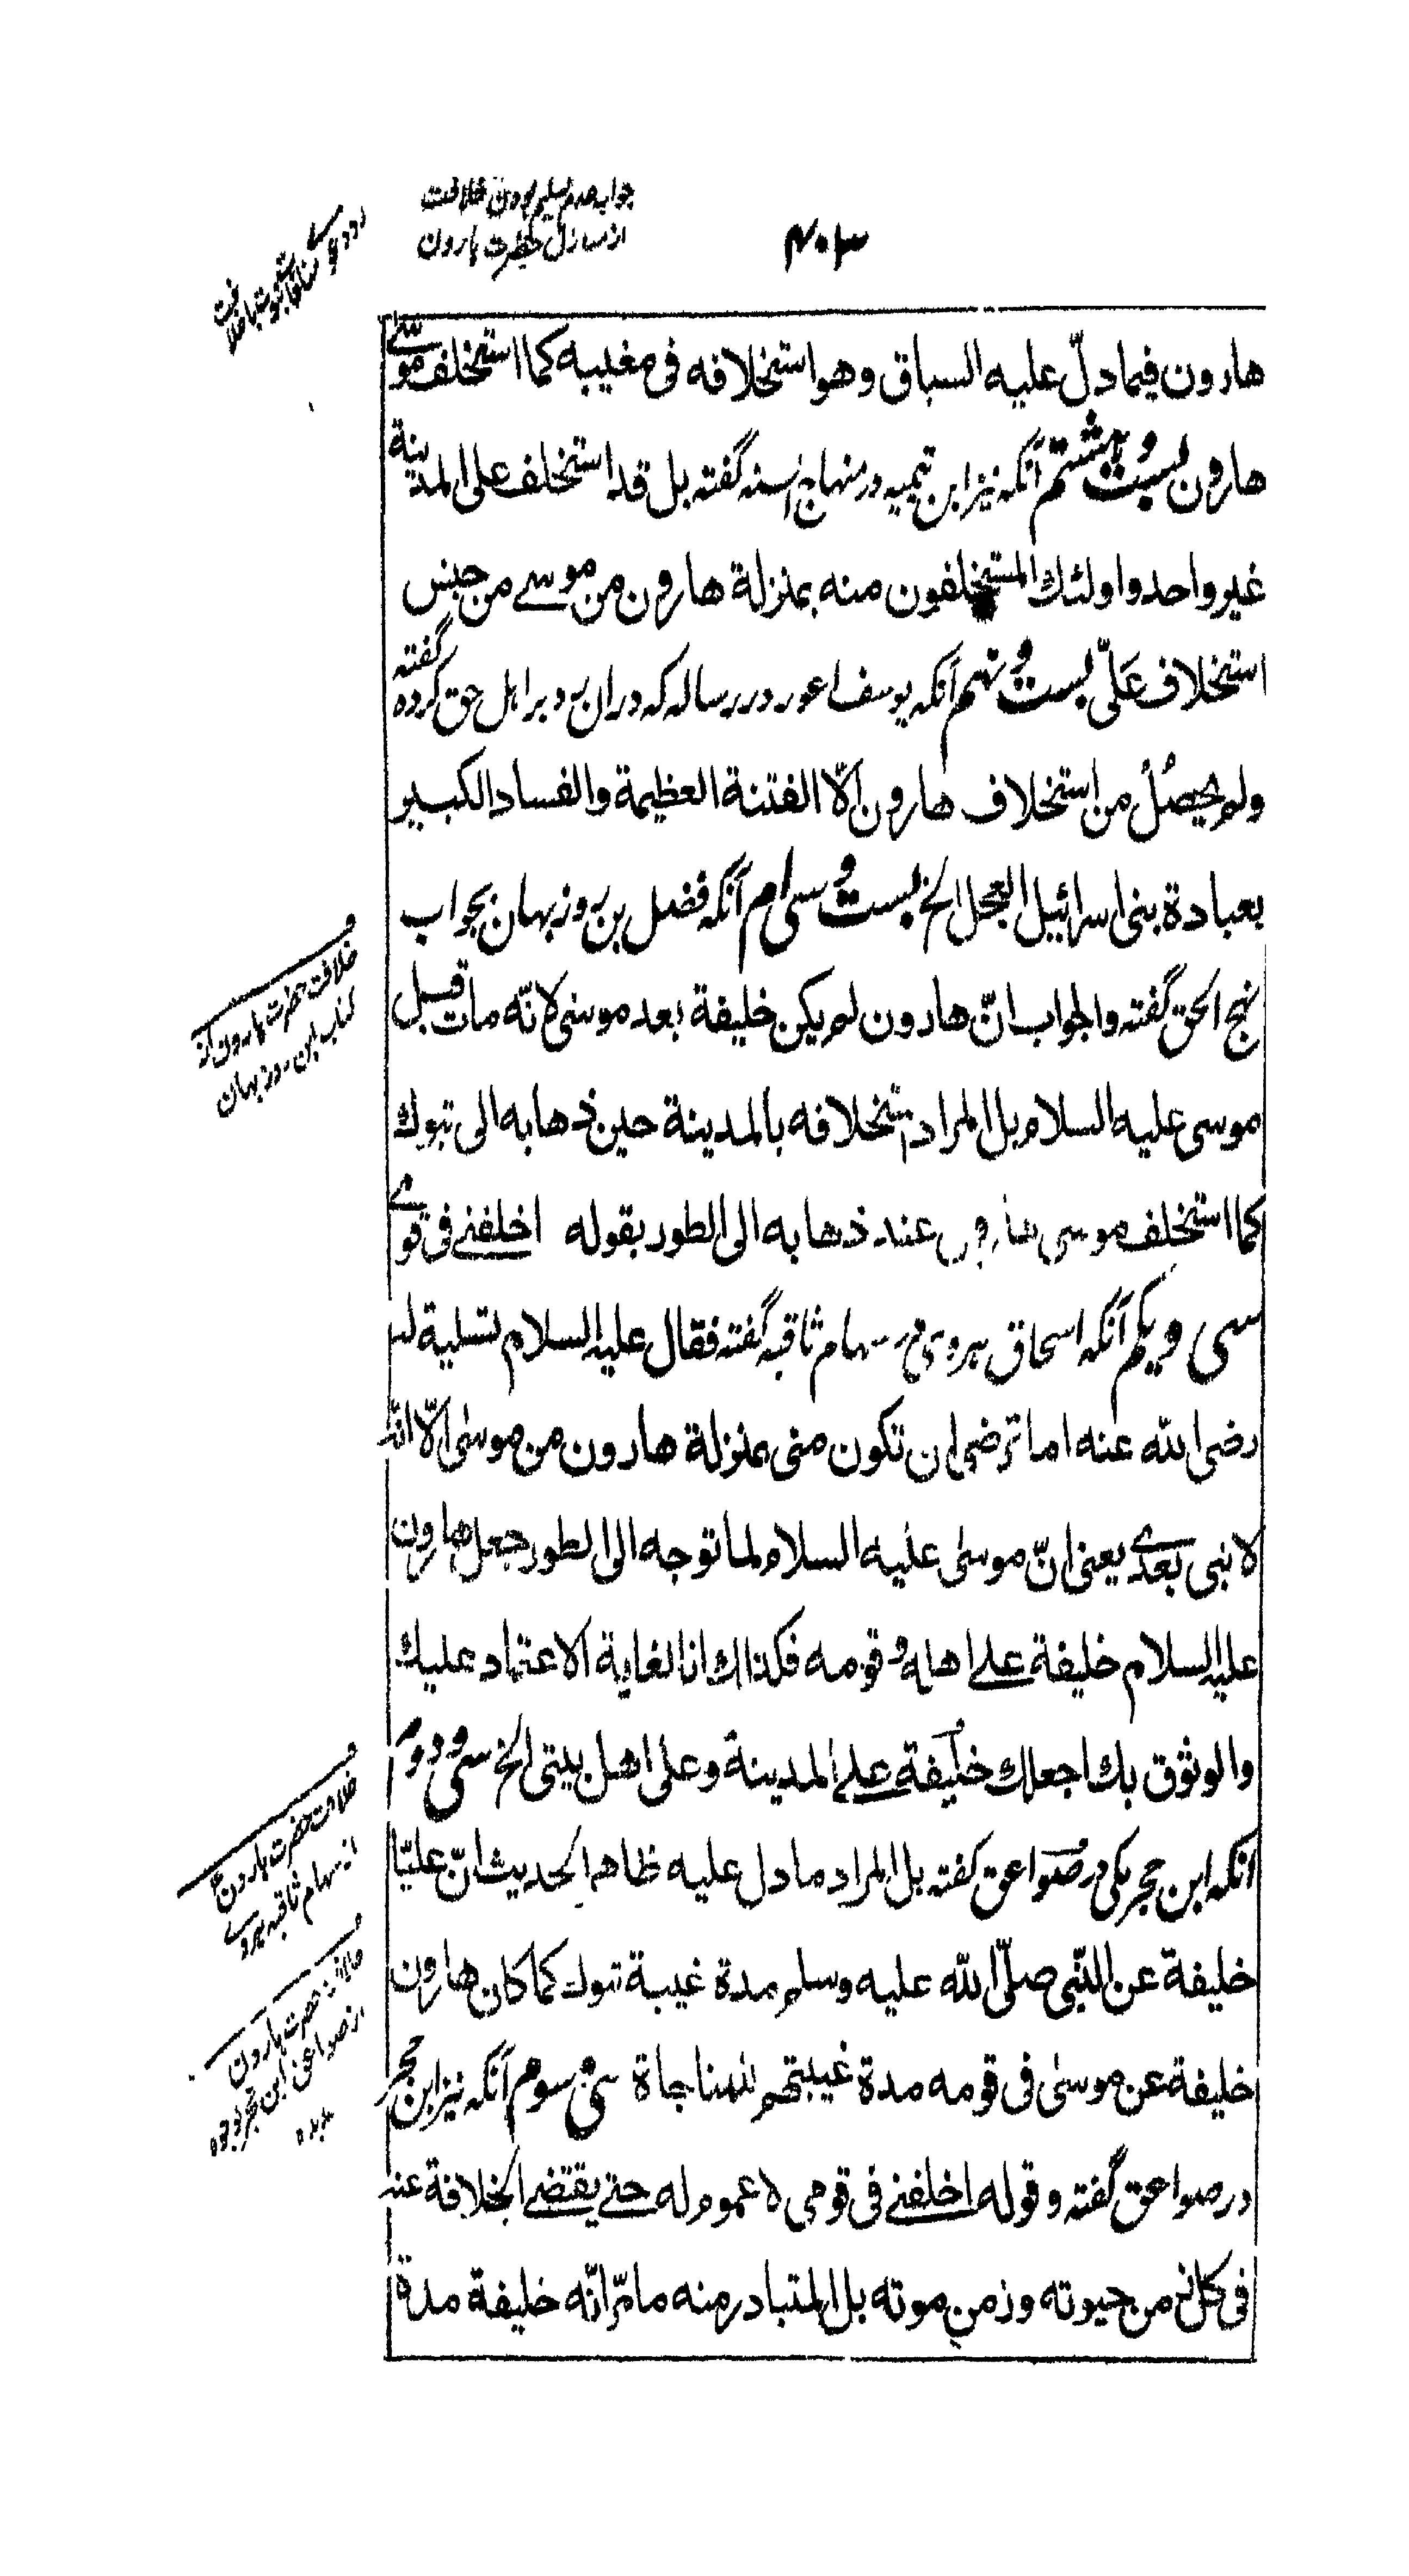 جواب عدم تسلیم بودن خلافت
از منازل حضرت هارون
۴۰۳
هارون فيما دلّ عليه السياق وهو استخلافه فى مغيبه كما استخلف موسى
هارون بست و هشتم آنکه نیز ابن تیمیه در منهاج السنه گفته بل قد استخلف على المدينة
غير واحد واولئك المستخلفون منه بمنزلة هارون من موسے من جنس
استخلاف علىّ بست و نهم آنکه یوسف اعور در رساله که دران رد بر اهل حق کرده گفته
ولم يحصُلْ من استخلاف هارون الّا الفتنة العظيمة والفساد الكبير
بعبادة بنى اسرائيل العجل الخ بست و سی ام آنکه فضل بن روزبهان بجواب
نهج الحق گفته والجواب انّ هارون لم يكن خليفة بعد موسى لانّه مات قبل
موسى عليه السلام بل المراد استخلافه بالمدينة حين ذهابه الى تبوك
كما استخلف موسى هارون عند ذهابه الى الطور بقوله اخلفنے فى قومے
سی و یکم آنکه اسحاق هروی در سهام ثاقبه گفته فقال عليه السلام تسلية له
رضى الله عنه اما ترضى ان تكون منى بمنزلة هارون من موسىٰ الّا انّه
لا نبى بعدے يعنى انّ موسىٰ عليه السلام لما توجه الى الطور جعل هارون
عليه السلام خليفة علے اهله و قومه فكذالك انا لغاية الاعتماد عليك
والوثوق بك اجعلك خليفة علے المدينة وعلى اهل بيتى الخ سی و دوم
آنکه ابن حجر مکی در صواعق گفته بل المراد ما دل عليه ظاهر الحديث انّ عليّا
خليفة عن النّبى صلّى الله عليه وسلم مدة غيبة تبوك كما كان هارون
خليفة عن موسىٰ فى قومه مدة غيبته عنهم للمناجاة سی و سوم آنکه نیز ابن حجر
در صواعق گفته و قوله اخلفنے فى قومى لا عموم له حتے يقتضے الخلافة عنه
فى كل زمن حيوته وزمن موته بل المتبادر منه ما مرّ انّه خليفة مدة
خلافت حضرت هارون از
کتاب ابن روزبهان
خلافت حضرت هارون
از سهام ثاقبه هروے
خلافت حضرت هارون
از صواعق ابن حجر